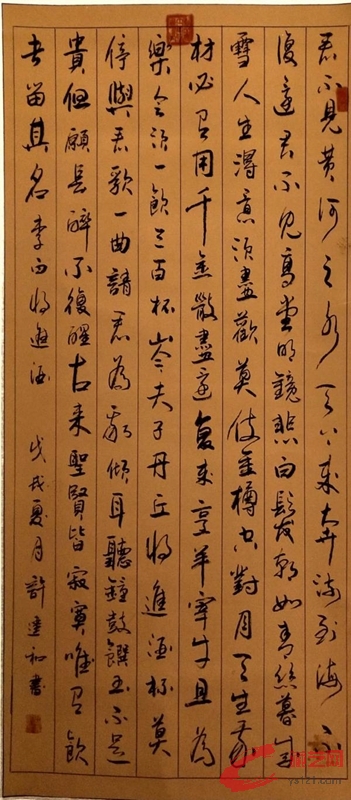 君不見黄河之水天上来奔流到海不
復還君不見高堂明鏡悲白髮朝如青絲暮成
雪人生得意須盡歡莫使金樽空對月天生我
材必有用千金散盡還復来烹羊宰牛且為
樂會須一飲三百杯岑夫子丹丘將進酒杯莫
停與君歌一曲請君為我傾耳聽鐘鼓饌玉不足
貴但願長醉不復醒古来聖賢皆寂寞唯有飲
者留其名李白將進酒 戊戌夏月許達和書